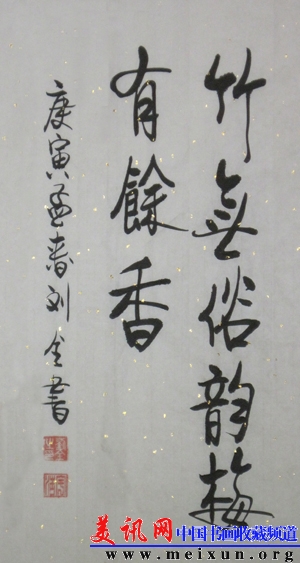 竹無俗韵梅
有餘香
庚寅孟春刘全書
美讯网 中国书画收藏频道
www.meixun.org